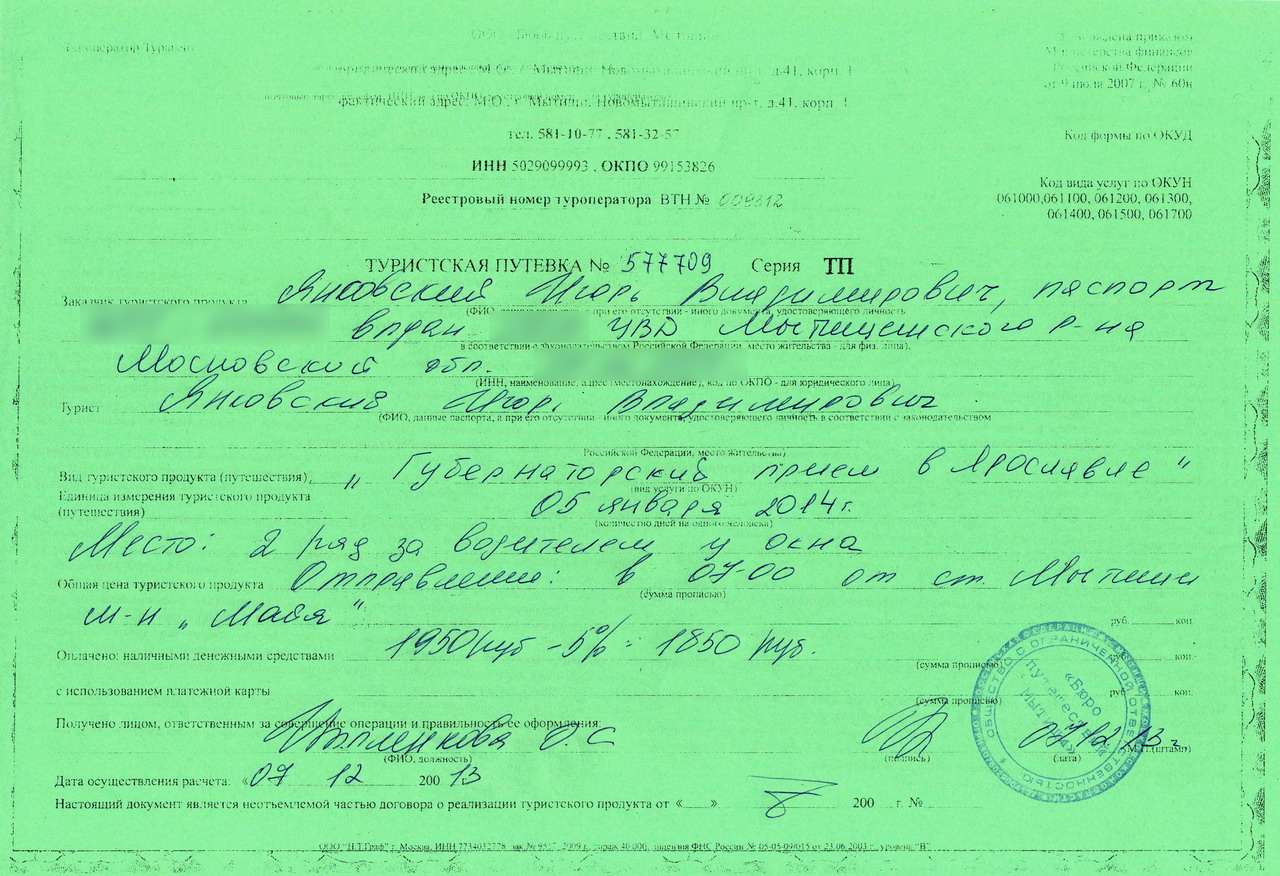 ООО «Бюро путешествий Мытищи»
Туроператор Турагент
Утверждена приказом
Министерства финансов
Российской Федерации
от 9 июля 2007 г. № 60н
юридический адрес: М.О., г. Мытищи, Новомытищинский пр-т, д.41, корп. 1
фактический адрес: М.О., г. Мытищи, Новомытищинский пр-т, д.41, корп. 1
тел. 581-10-77, 581-32-57
Код формы по ОКУД
ИНН 5029099993, ОКПО 99153826
Код вида услуг по ОКУН
061000,061100, 061200, 061300,
061400, 061500, 061700
Реестровый номер туроператора ВТН № 009312
ТУРИСТСКАЯ ПУТЕВКА № 577709 Серия ТП
Заказчик туристского продукта Янковский Игорь Владимирович, паспорт
(ФИО, данные паспорта, а при его отсутствии - иного документа, удостоверяющего личность
выдан УВД Мытищинского р-на
в соответствии с законодательством Российской Федерации, место жительства - для физ. лица),
Московской обл.
(ИНН, наименование, адрес (местонахождение), код по ОКПО - для юридического лица)
Турист Янковский Игорь Владимирович
(ФИО, данные паспорта, а при его отсутствии - иного документа, удостоверяющего личность в соответствии с законодательством
Российской Федерации, место жительства)
Вид туристского продукта (путешествия), „Губернаторский прием в Ярославле"
(вид услуги по ОКУН)
Единица измерения туристского продукта
(путешествия) 05 января 2014г.
(количество дней на одного человека)
Место: 2 ряд за водителем у окна
Общая цена туристского продукта Отправление: в 07-00 от ст. Мытищи
(сумма прописью)
м-н „Майя" руб. коп.
Оплачено: наличными денежными средствами 1950 руб -5% = 1850 руб. руб. коп.
(сумма прописью)
с использованием платежной карты руб. коп.
(сумма прописью)
Получено лицом, ответственным за совершение операции и правильность ее оформления:
О.С 07.12.13г.
(ФИО, должность) (подпись) (дата) М.П.(штамп)
Дата осуществления расчета: «07 12 200 13 г.
Настоящий документ является неотъемлемой частью договора о реализации туристского продукта от « » 200 г. №
ООО "Н.Т.Граф" г. Москва, ИНН 7734032778 зак.№ 9517, 2009 г., тираж 40 000, лицензия ФНС России № 05-05-09/015 от 23.06.2003 г., уровень "В"
ОБЩЕСТВО С ОГРАНИЧЕННОЙ ОТВЕТСТВЕННОСТЬЮ
«Бюро
путешествий
Мытищи»